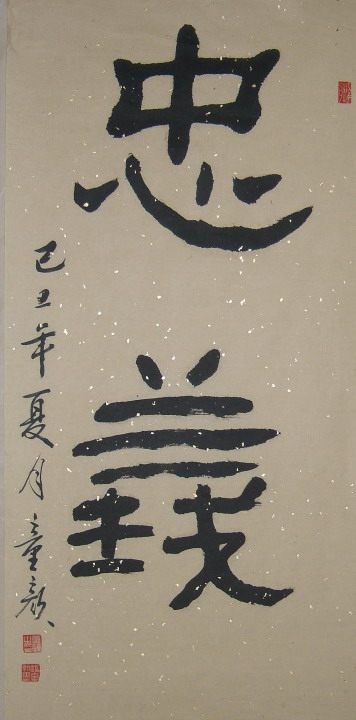 忠義
己丑年夏月童颜